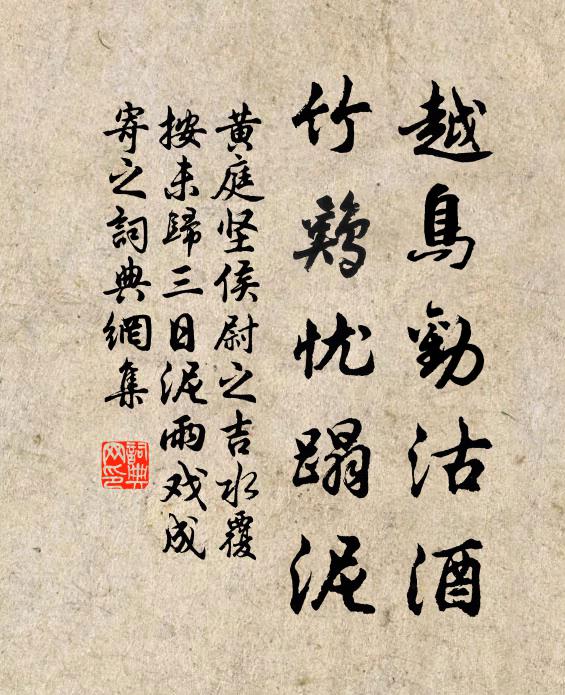 越鳥勸沽酒
竹鷄忧蹋泥
黄庭坚侯尉之吉水覆
按未歸三日泥雨戏成
寄之詞典網集
詞典
网印